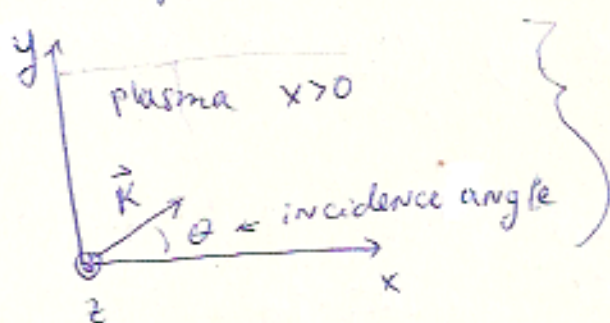 y
plasma x>0
K⃗
θ ← incidence angle
x
z